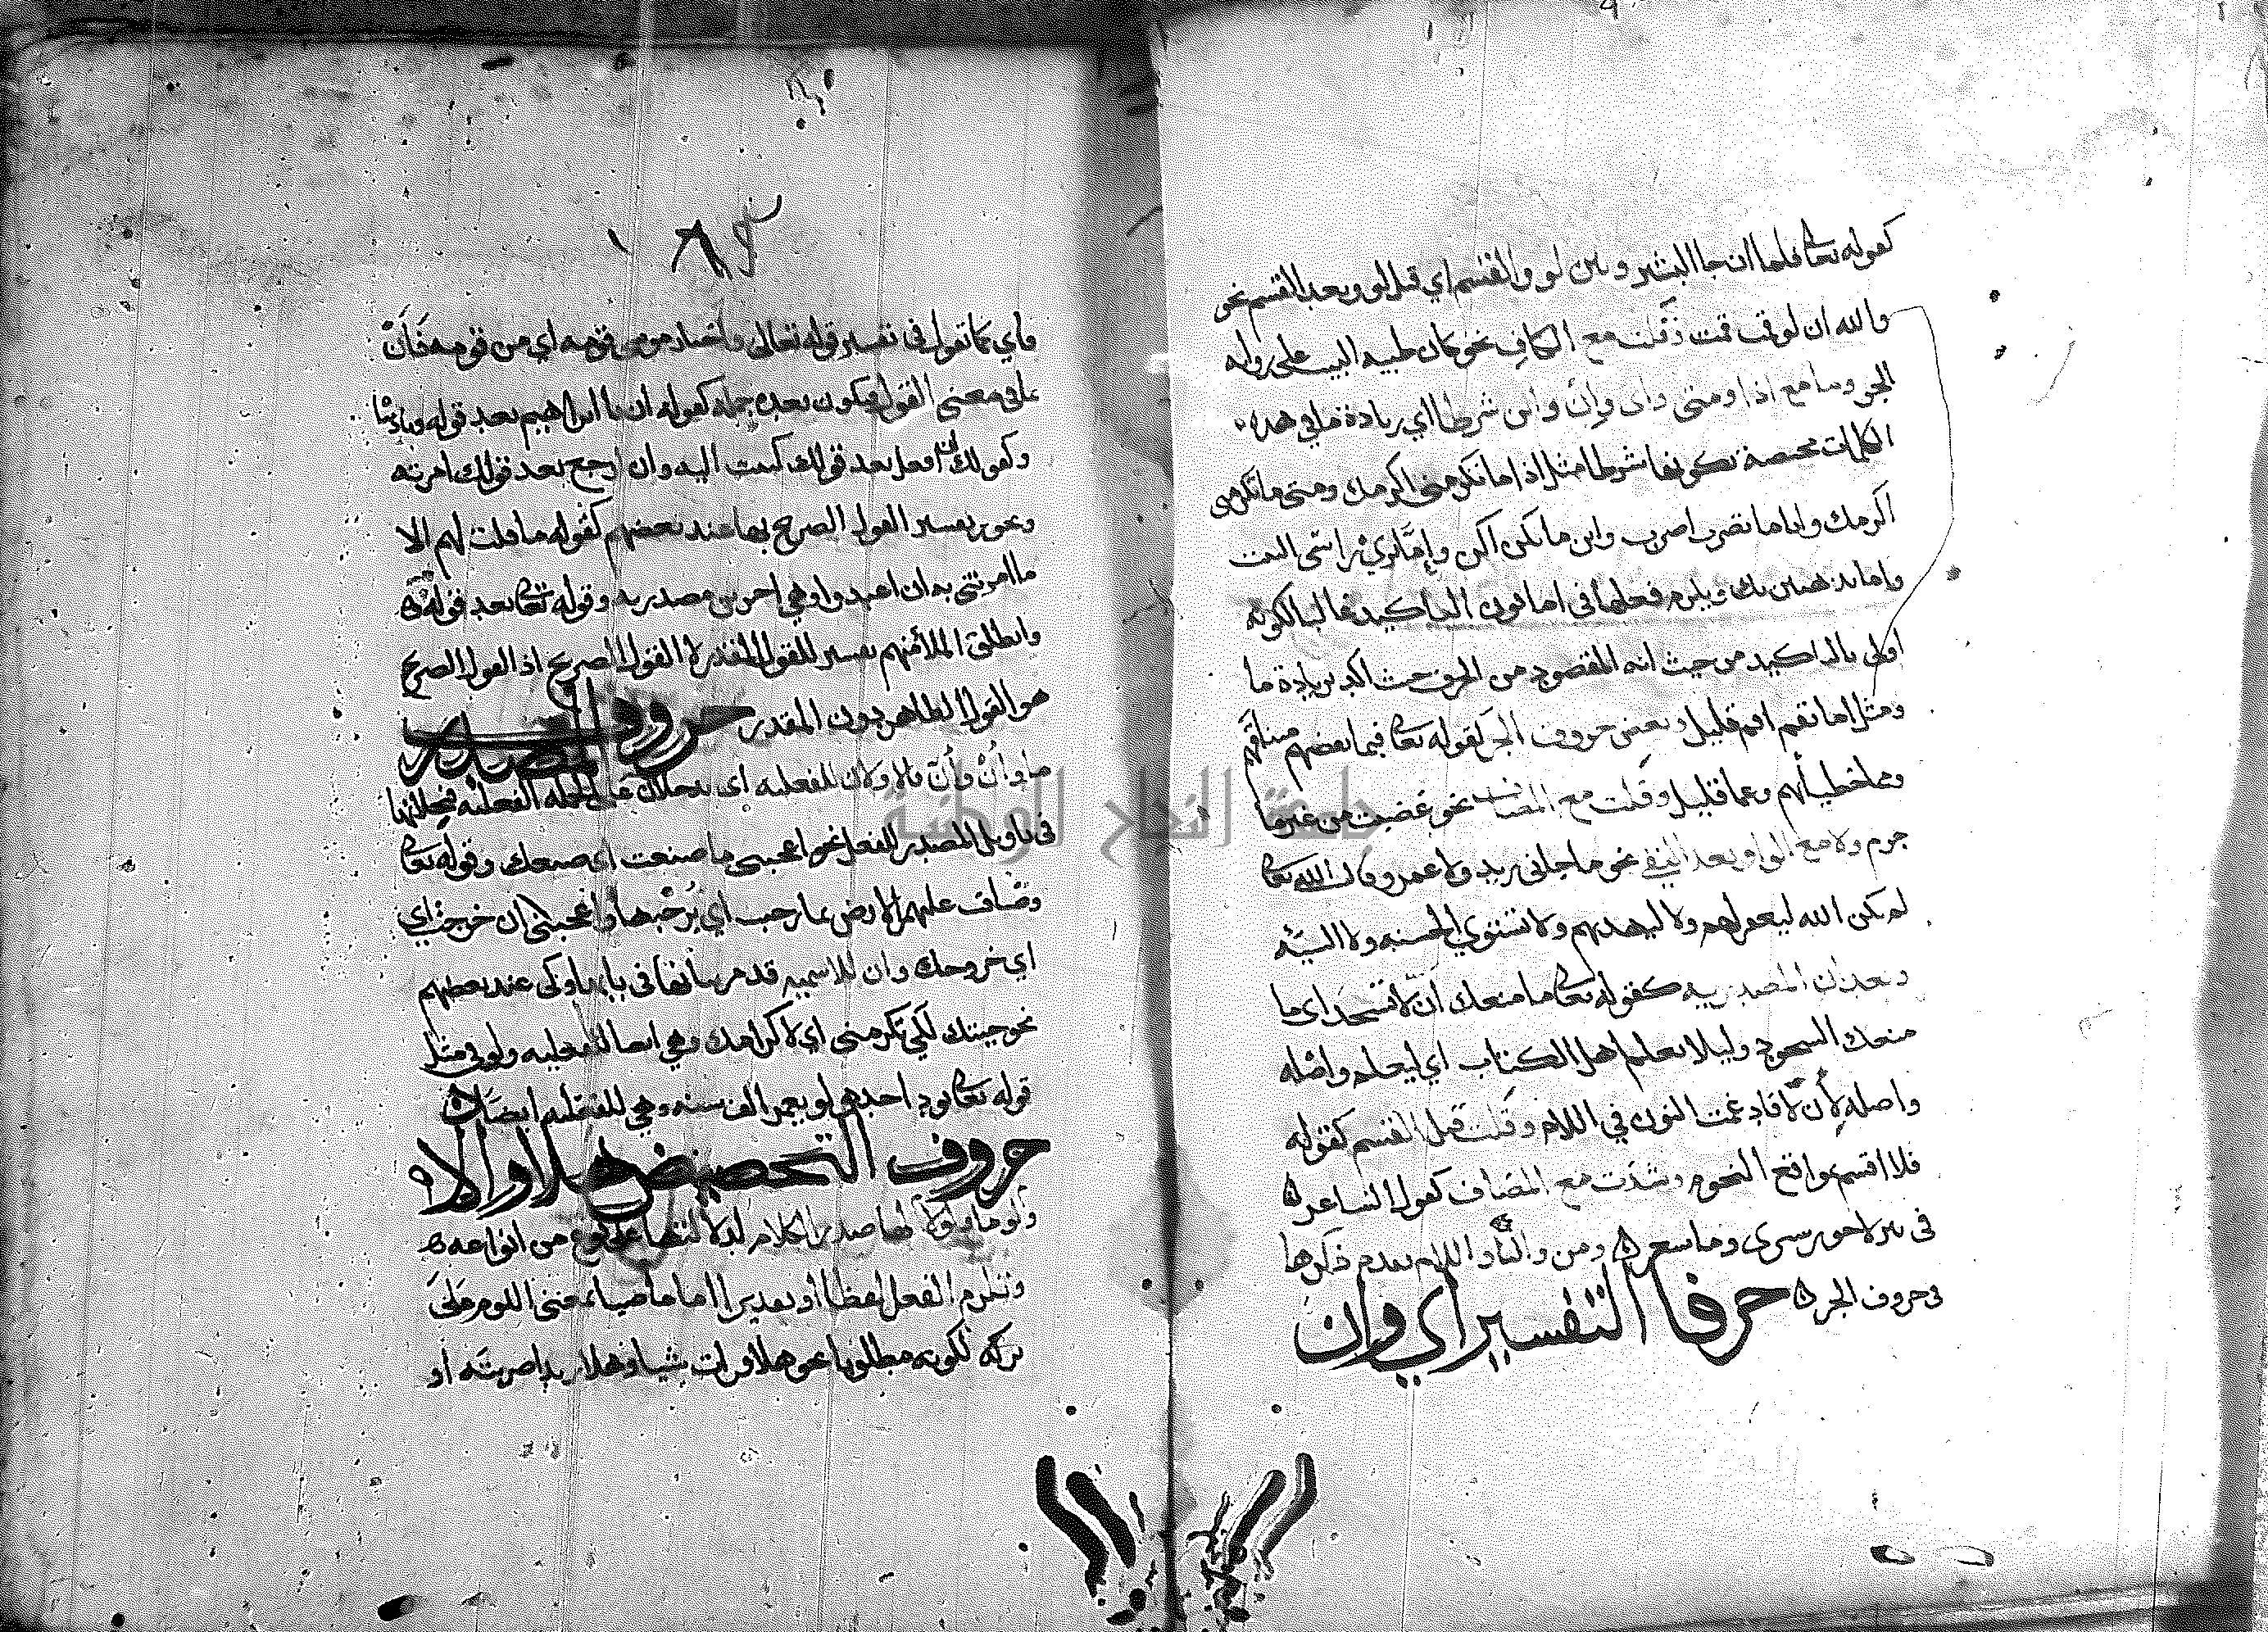 كقوله تعا فلما ان جا البشير وبين لو والقسم اي قبل لو وبعد القسم نحو
والله ان لو قمت قمت وقلت مع الكاف نحو كان ظبيه البيت على روايه
الجر وما مع اذا ومتى واى وأين وان شرطا اي زيادة ما في هذه
الكلمات مختصة بكونها شرطا مثل اذا ما تكرمنى اكرمك ومتى ما تكرمنى
اكرمك واياما تضرب اضرب واين ما تكن اكن وإمّا ترينّ
واما نذهبن بك ويلزم فعلها في اما نون التاكيد غالبا لكونه
اولى بالتاكيد من حيث انه المقصود من الحرف حيث اكد بزيادة ما
ومثل اما تقم اقم قليل وبعض حروف الجر كقوله تعا فبما نقضهم ميثاقهم
ومما خطيأتهم وعما قليل وقلت مع المضاف نحو غضبت من غير ما
جرم ولا مع الواو بعد النفي نحو ما جانى زيد ولا عمرو قال الله تعا
لم يكن الله ليغفر لهم ولا ليهديهم ولا تستوي الحسنه ولا السيئه
وبعد ان المصدريه كقوله تعا ما منعك ان لا تسجد اى ما
منعك السجود وليلا يعلم اهل الكتاب اي ليعلم واصله
واصله لأن لا فادغمت النون في اللام وقلت قبل القسم كقوله
فلا اقسم بمواقع النجوم وشذت مع المضاف كقول الشاعر
فى بير لا حور سرى وما شعر ومن والبا واللام تقدم ذكرها
فى حروف الجر حرفا التفسير اي وان
١٨٢
فاي كما تقول في تفسير قوله تعالى واختار موسى قومه اي من قومه فان
بما في معنى القول ويكون بعده جمله كقوله ان يا ابراهيم بعد قوله وناديناه
وكقولك ان افعل بعد قولك كتبت اليه وان ارجع بعد قولك امرته
ويجوز تفسير القول الصريح بها عند بعضهم كقوله ما قلت لهم الا
ما امرتنى به ان اعبدوا وهي اخرى مصدريه وقوله تعا بعد قوله
وانطلق الملأ منهم تفسير للقول المقدر لا القول الصريح اذ القول الصريح
هو القول الظاهر دون المقدر حروف المصدر
ما وأنْ وأنّ فالاولان للفعليه اى يدخلان على الجمله الفعليه فيجعلانها
فى تاويل المصدر للفعل نحو اعجبنى ما صنعت اى صنعك وقوله تعا
وضاقت عليهم الارض بما رحبت اي برحبها واعجبنى ان خرجت اي
اي خروجك وان للاسميه قد مر بيانها فى بابها وكى عند بعضهم
نحو جيتك لكي تكرمنى اي لاكرامك وهي ايضا للفعليه ولو في مثل
قوله تعا يود احدهم لو يعمر الف سنه وهي للفعليه ايضا
حروف التحضيض هلا والا
ولوما ولولا لها صدر الكلام لدلالتها على نوع من انواعه
وتلزم الفعل لفظا او تقديرا اما ماضيا بمعنى اللوم على
تركه لكونه مطلوبا نحو هلا قرات شيا وهلا زيدا ضربته او
جامعة النجاح الوطنية